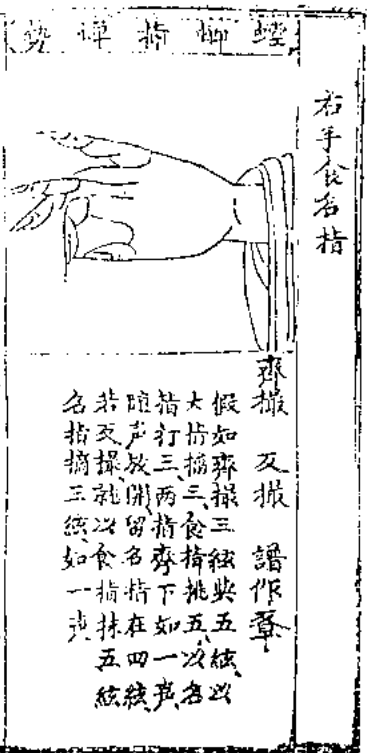 右手食名指
螳螂捕蟬势
齊撮 反撮 譜作
假如齊撮三絃與五絃以
大指摘三食指挑五以名
指打三两指齊下如一声
随声放開留名指在四絃
若反撮就以食指抹五絃
名指摘三絃如一声